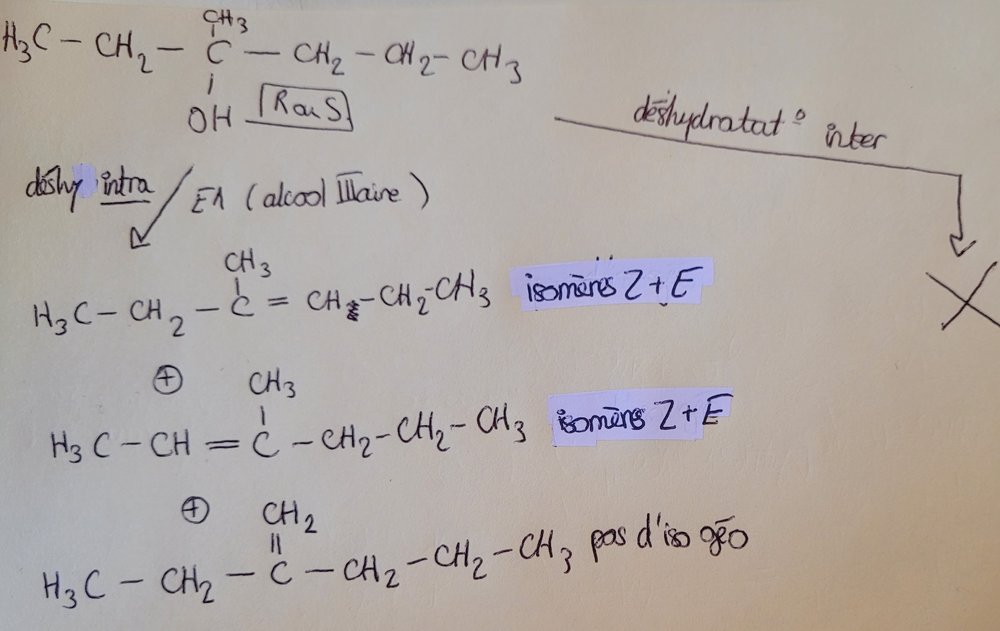 CH₃
H₃C – CH₂ – C – CH₂ – CH₂ – CH₃
OH R ou S
déshydratat° inter
déshy intra E1 (alcool IIIaire)
CH₃
H₃C – CH₂ – C = CH – CH₂ – CH₃ isomères Z + E
⊕ CH₃
H₃C – CH = C – CH₂ – CH₂ – CH₃ isomères Z + E
⊕ CH₂
H₃C – CH₂ – C – CH₂ – CH₂ – CH₃ pas d'iso géo